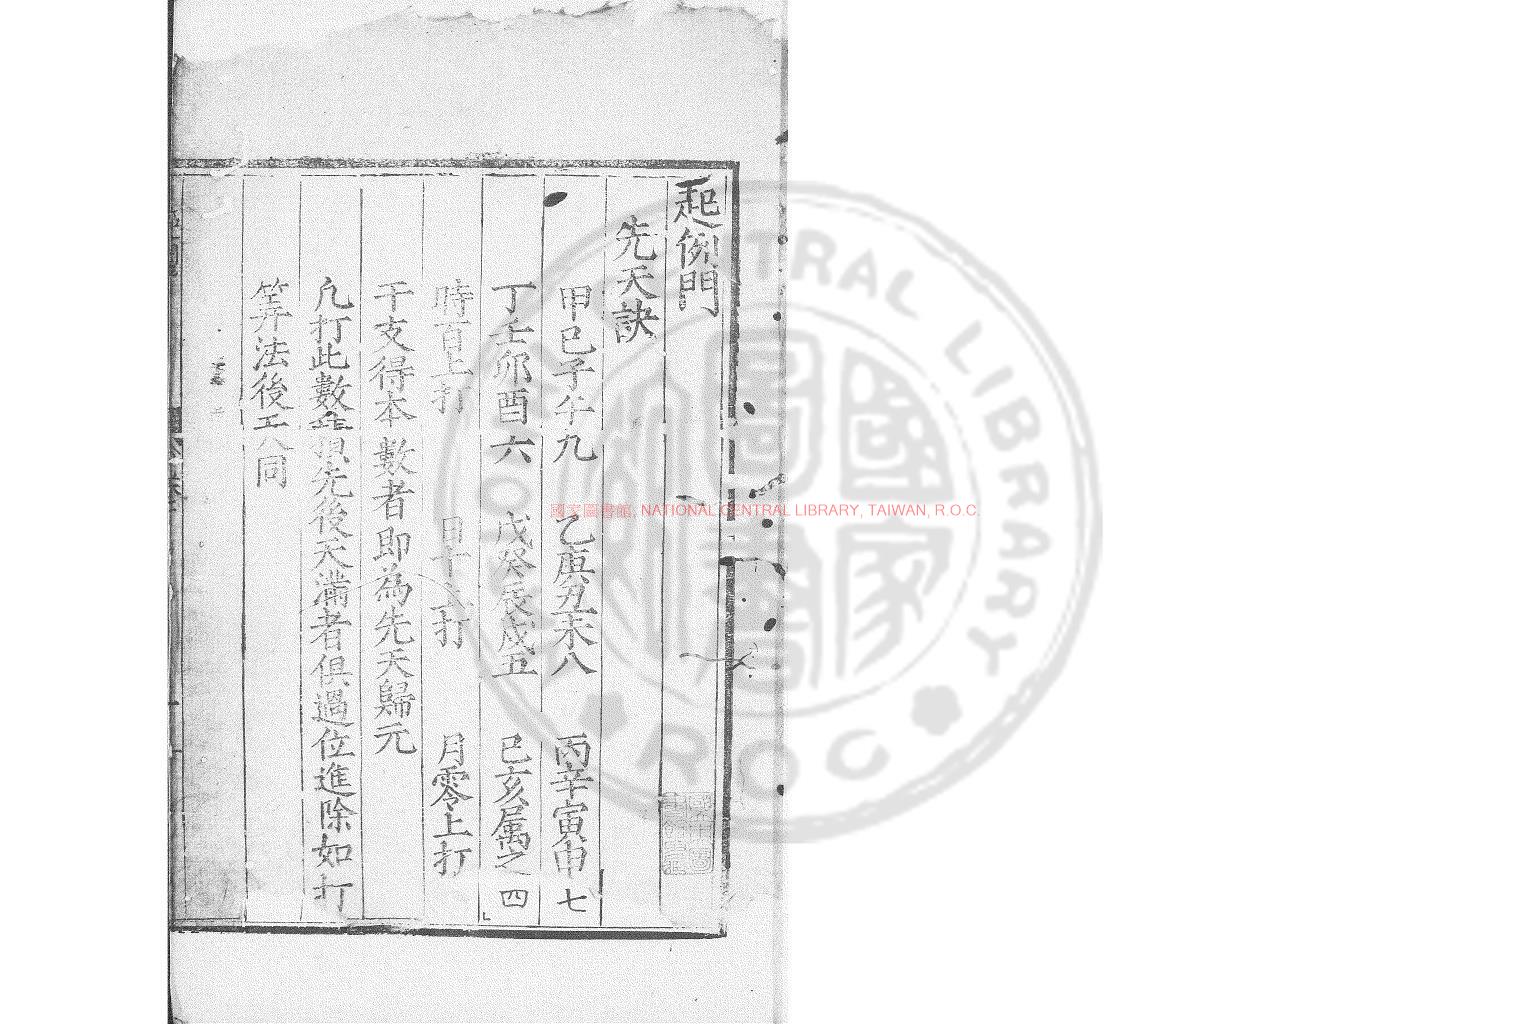 起例門
先天訣
甲己子午九　乙庚丑未八　丙辛寅申七
丁壬卯酉六　戊癸辰戌五　巳亥属之四
時百上打　日十上打　月零上打
干支得本數者即為先天歸元
凡打此數先後天滿者俱過位進除如打
筭法後天同
國家圖書館, NATIONAL CENTRAL LIBRARY, TAIWAN, R.O.C.
CENTRAL LIBRARY
ROC